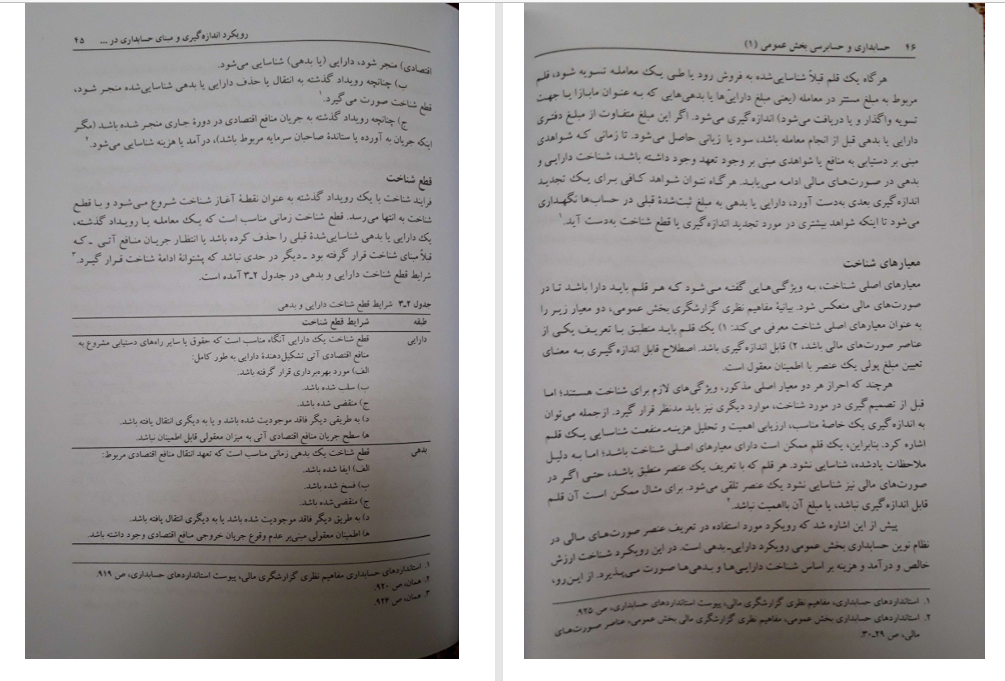 رویکرد اندازه‌گیری و مبنای حسابداری در ... ۴۵
اقتصادی) منجر شود، دارایی (یا بدهی) شناسایی می‌شود.
ب) چنانچه رویداد گذشته به انتقال یا حذف دارایی یا بدهی شناسایی‌شده منجر شود،
قطع شناخت صورت می گیرد.۱
ج) چنانچه رویداد گذشته به جریان منافع اقتصادی در دورهٔ جاری منجر شده باشد (مگر
اینکه جریان به آورده یا ستاندهٔ صاحبان سرمایه مربوط باشد)، درآمد یا هزینه شناسایی می‌شود.۲
قطع شناخت
فرایند شناخت با یک رویداد گذشته به عنوان نقطهٔ آغاز شناخت شروع می‌شود و با قطع
شناخت به انتها می‌رسد. قطع شناخت زمانی مناسب است که یک معامله یا رویداد گذشته،
یک دارایی یا بدهی شناسایی‌شدهٔ قبلی را حذف کرده باشد یا انتظار جریان منافع آتی ـ که
قبلاً مبنای شناخت قرار گرفته بود ـ دیگر در حدی نباشد که پشتوانهٔ ادامهٔ شناخت قرار گیرد.۳
شرایط قطع شناخت دارایی و بدهی در جدول ۲ـ۳ آمده است.
جدول ۲ـ۳ شرایط قطع شناخت دارایی و بدهی
طبقه شرایط قطع شناخت
دارایی قطع شناخت یک دارایی آنگاه مناسب است که حقوق یا سایر راه‌های دستیابی مشروع به
منافع اقتصادی آتی تشکیل‌دهندهٔ دارایی به طور کامل:
الف) مورد بهره‌برداری قرار گرفته باشد.
ب) سلب شده باشد.
ج) منقضی شده باشد.
د) به طریقی دیگر فاقد موجودیت شده باشد و یا به دیگری انتقال یافته باشد.
ه‍) سطح جریان منافع اقتصادی آتی به میزان معقولی قابل اطمینان نباشد.
بدهی قطع شناخت یک بدهی زمانی مناسب است که تعهد انتقال منافع اقتصادی مربوط:
الف) ایفا شده باشد.
ب) فسخ شده باشد.
ج) منقضی‌شده باشد.
د) به طریق دیگر فاقد موجودیت شده باشد یا به دیگری انتقال یافته باشد.
ه‍) اطمینان معقولی مبنی‌بر عدم وقوع جریان خروجی منافع اقتصادی وجود داشته باشد.
۱. استانداردهای حسابداری مفاهیم نظری گزارشگری مالی، پیوست استانداردهای حسابداری، ص ۹۱۹.
۲. همان، ص ۹۲۰.
۳. همان، ص ۹۲۴.
۴۶ حسابداری و حسابرسی بخش عمومی (۱)
هرگاه یک قلم قبلاً شناسایی‌شده به فروش رود یا طی یک معامله تسویه شود، قلم
مربوط به مبلغ مستتر در معامله (یعنی مبلغ دارایی‌ها یا بدهی‌هایی که به عنوان مابازا یا جهت
تسویه واگذار و یا دریافت می‌شود) اندازه‌گیری می‌شود. اگر این مبلغ متفاوت از مبلغ دفتری
دارایی یا بدهی قبل از انجام معامله باشد، سود یا زیانی حاصل می‌شود. تا زمانی که شواهدی
مبنی بر دستیابی به منافع یا شواهدی مبنی بر وجود تعهد وجود داشته باشد، شناخت دارایی و
بدهی در صورت‌های مالی ادامه می‌یابد. هرگاه نتوان شواهد کافی برای یک تجدید
اندازه‌گیری بعدی به‌دست آورد، دارایی یا بدهی به مبلغ ثبت‌شدهٔ قبلی در حساب‌ها نگهداری
می‌شود تا اینکه شواهد بیشتری در مورد تجدید اندازه‌گیری یا قطع شناخت به‌دست آید.۱
معیارهای شناخت
معیارهای اصلی شناخت، به ویژگی‌هایی گفته می‌شود که هر قلم باید دارا باشد تا در
صورت‌های مالی منعکس شود. بیانیهٔ مفاهیم نظری گزارشگری بخش عمومی، دو معیار زیر را
به عنوان معیارهای اصلی شناخت معرفی می‌کند: ۱) یک قلم باید منطبق با تعریف یکی از
عناصر صورت‌های مالی باشد، ۲) قابل اندازه‌گیری باشد. اصطلاح قابل اندازه‌گیری به معنای
تعیین مبلغ پولی یک عنصر با اطمینان معقول است.
هرچند که احراز هر دو معیار اصلی مذکور، ویژگی‌های لازم برای شناخت هستند؛ اما
قبل از تصمیم‌گیری در مورد شناخت، موارد دیگری نیز باید مدنظر قرار گیرد. ازجمله می‌توان
به اندازه‌گیری یک خاصهٔ مناسب، ارزیابی اهمیت و تحلیل هزینه‌ـ‌منفعت شناسایی یک قلم
اشاره کرد. بنابراین، یک قلم ممکن است دارای معیارهای اصلی شناخت باشد؛ اما به دلیل
ملاحظات یادشده، شناسایی نشود. هر قلم که با تعریف یک عنصر منطبق باشد، حتی اگر در
صورت‌های مالی نیز شناسایی نشود یک عنصر تلقی می‌شود. برای مثال ممکن است آن قلم
قابل اندازه‌گیری نباشد، یا مبلغ آن بااهمیت نباشد.۲
پیش از این اشاره شد که رویکرد مورد استفاده در تعریف عنصر صورت‌های مالی در
نظام نوین حسابداری بخش عمومی رویکرد دارایی‌ـ‌بدهی است. در این رویکرد شناخت ارزش
خالص و درآمد و هزینه بر اساس شناخت دارایی‌ها و بدهی‌ها صورت می‌پذیرد. از این‌رو،
۱. استانداردهای حسابداری، مفاهیم نظری گزارشگری مالی، پیوست استانداردهای حسابداری، ص ۹۲۵.
۲. استانداردهای حسابداری بخش عمومی، مفاهیم نظری گزارشگری مالی بخش عمومی، عناصر صورت‌های
مالی، ص ۲۹ـ۳۰.